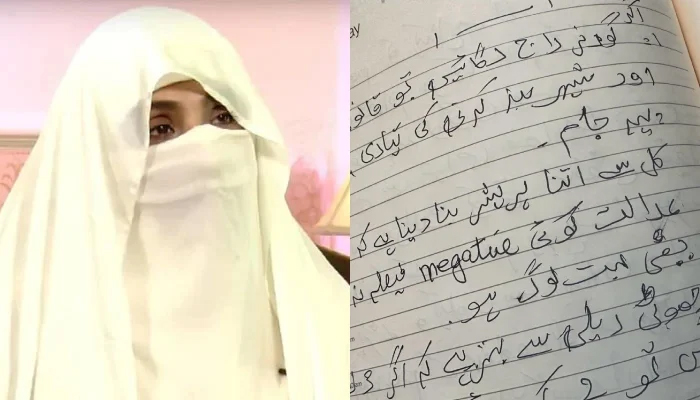 ay
اگر
۱۔ گورنر راج لگائیں تو قانو
اور شہر بند کرنے کی تیاری
پہیہ جام۔
کل سے اتنا پریشر بنا دینا ہے کہ
عدالت کوئی negative فیصلہ نہ
بھی بہت لوگ ہو۔
چھوٹی ریلی سے بہتر ہے کہ اگر
تو